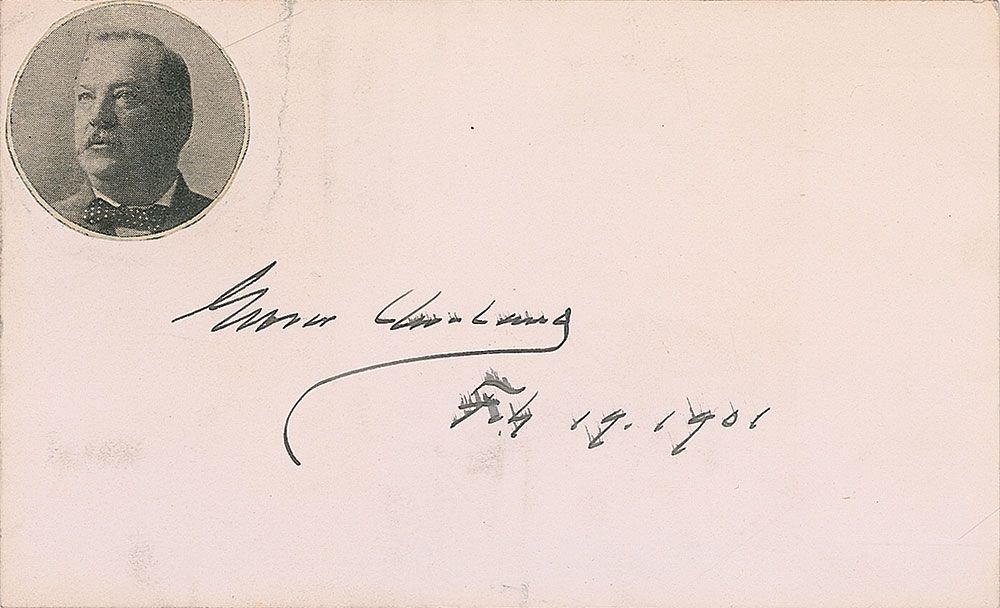 Grover Cleveland
Feb 19. 1901